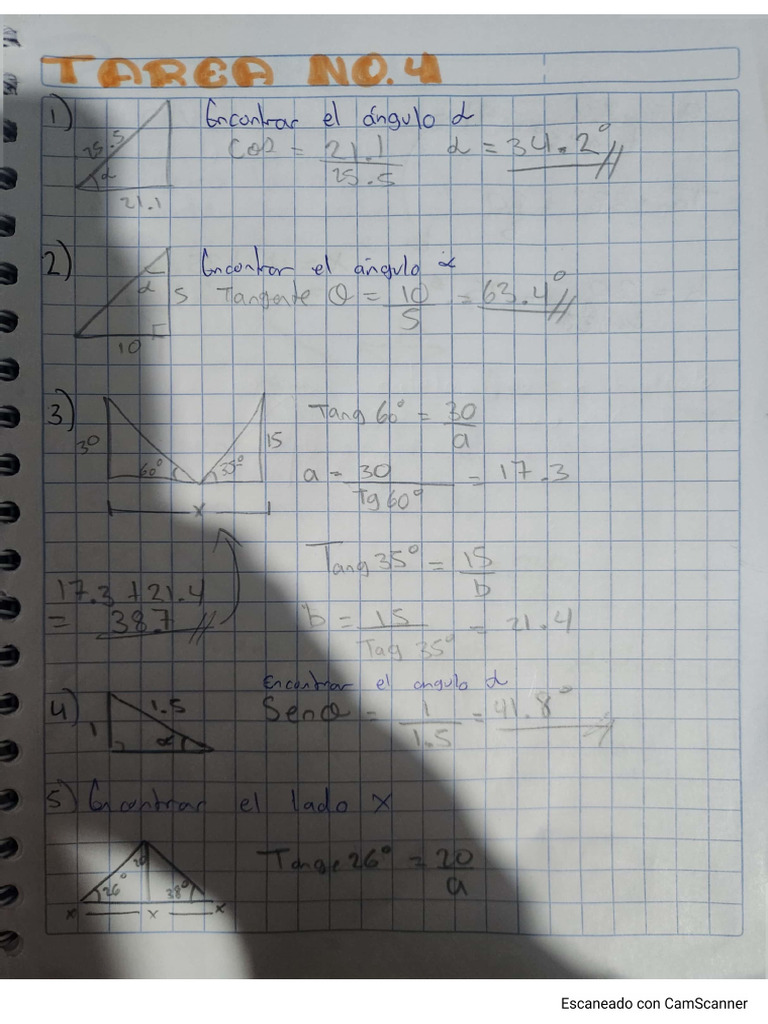 TAREA NO.4
1) Encontrar el ángulo α
25.5
α
21.1
Cos = 21.1
25.5
α = 34.2°
2) Encontrar el ángulo α
α
5
10
Tangente θ = 10 = 63.4°
5
3)
30
60°
35°
15
x
Tang 60° = 30
a
a = 30 = 17.3
Tg 60°
Tang 35° = 15
b
b = 15 = 21.4
Tag 35°
17.3 + 21.4
= 38.7
4)
1.5
1
α
Encontrar el angulo α
Senθ = 1 = 41.8°
1.5
5) Encontrar el lado x
20
26°
38°
x x x
Tange 26° = 20
a
Escaneado con CamScanner